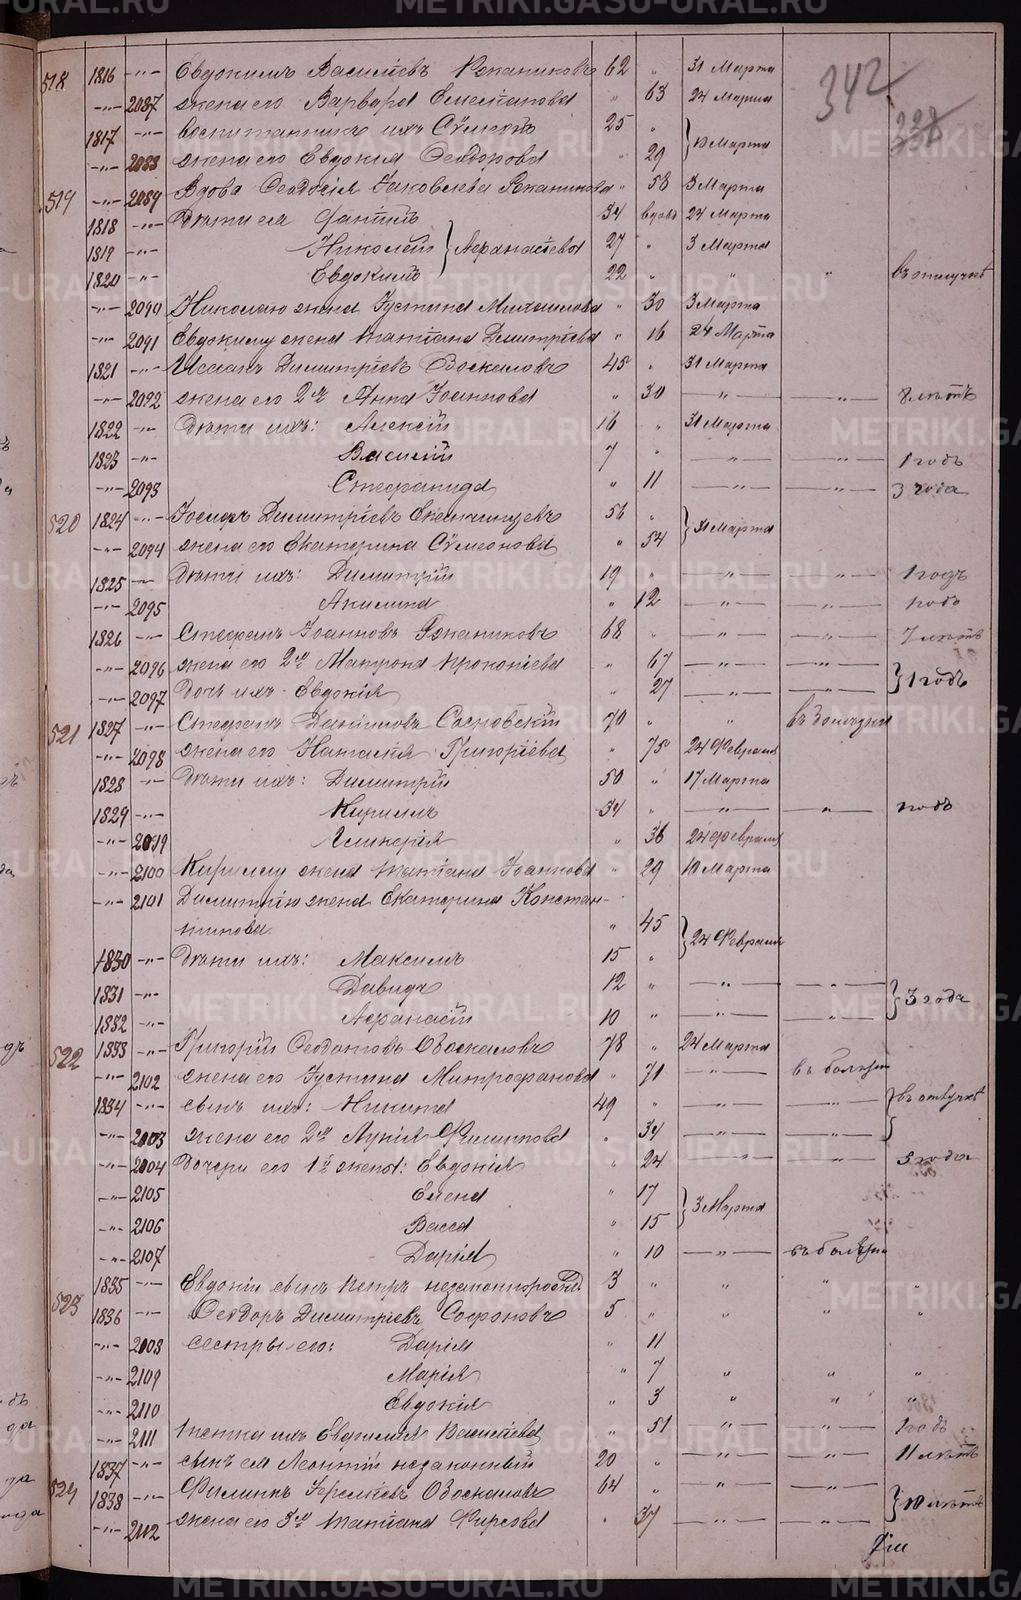 METRIKI.GASO-URAL.RU METRIKI.G
342
518 1816 -"- Евдокимъ Василіевъ Рожаниковъ 62 " 31 Марта
-"- 2087 жена его Варвара Емельянова " 63 24 Марта
1817 -"- воспитанникъ ихъ Сѵмеонъ 25 "
-"- 2088 жена его Евдокія Ѳеодорова " 29 } 10 Марта
519 -"- 2089 Вдова Ѳеодосія Іаковлева Рожаникова " 58 3 Марта
1818 -"- Дѣти ея 34 вдовъ 24 Марта
1819 -"- Николай } Аѳанасіевы 27 " 3 Марта
1820 -"- Евдокимъ 22 " " " въ отлучкѣ
-"- 2090 Николаю жена Іустина Михаилова " 30 3 Марта
-"- 2091 Евдокиму жена Татіана Димитріева " 16 24 Марта
1821 -"- Димитріевъ 45 " 31 Марта
-"- 2092 жена его 2я Анна Іоаннова " 30 -"- -"- лѣтъ
1822 -"- Дѣти ихъ: Алексій 16 " 31 Марта
1823 -"- Василій 7 " -"- -"- 1 годъ
-"- 2093 Стефанида " 11 -"- -"- 3 года
520 1824 -"- Іосифъ Димитріевъ 56 "
-"- 2094 жена его Екатерина Сѵмеонова " 54 } 31 Марта
1825 -"- Дѣти ихъ: Димитрій 19 " -"- -"- 1 годъ
-"- 2095 Акилина " 12 -"- -"- годъ
1826 -"- Стефанъ Іоанновъ Рожаниковъ 68 " -"- -"- 7 лѣтъ
-"- 2096 жена его 2я Матрона Прокопіева " 67 -"- -"-
-"- 2097 Дочь ихъ Евдокія " 27 -"- -"- } 1 годъ
521 1827 -"- Стефанъ Даниловъ Сосновскій 70 " " въ болѣзни
-"- 2098 жена его Наталія Григоріева " 75 24 Февраля
1828 -"- Дѣти ихъ: Димитрій 50 " 17 Марта
1829 -"- Кириллъ 34 " -"- " годъ
-"- Гликерія " 36 24 Февраля
-"- 2100 Кириллу жена Татіана Іоаннова " 29 10 Марта
-"- 2101 Димитрію жена Екатерина Констан-
тинова. " 45
1830 -"- Дѣти ихъ: Максимъ 15 " } 24 Февраля
1831 -"- Давидъ 12 " -"- -"-
1832 -"- Аѳанасій 10 " -"- -"- } 3 года
522 1833 -"- Григорій Ѳеодотовъ 78 " 24 Марта
-"- 2102 жена его Іустина Митрофанова " 71 -"- въ болѣзни
1834 -"- сынъ ихъ: Никита 49 " -"- -"- } въ отлучкѣ
-"- жена его 2я Лукія Филиппова " 34 -"- -"-
-"- дочери его 1й жены: Евдокія " 24 -"- -"- 5 года
-"- 2105 Елена " 17
-"- 2106 Васса " 15 } 3 Марта
-"- 2107 Дарія " 10 -"- въ болѣзни
1835 -"- Евдокіи сынъ Петръ незаконнорожд. 3 " " " "
523 1836 -"- Ѳеодоръ Димитріевъ Софоновъ 5 " " " "
-"- 2108 сестры его: Дарія " 11
-"- 2109 Марія " 7 " " "
-"- 2110 Евдокія " 3 " " "
-"- 2111 Тетка ихъ Василіева " 51 -"- -"- 1 годъ
1837 -"- сынъ ея Леонтій незаконный 20 " -"- -"- 11 лѣтъ
524 1838 -"- Филиппъ 64 " -"- -"-
-"- 2112 жена его 3я Татіана Фирсова " 37 -"- -"- } 10 лѣтъ